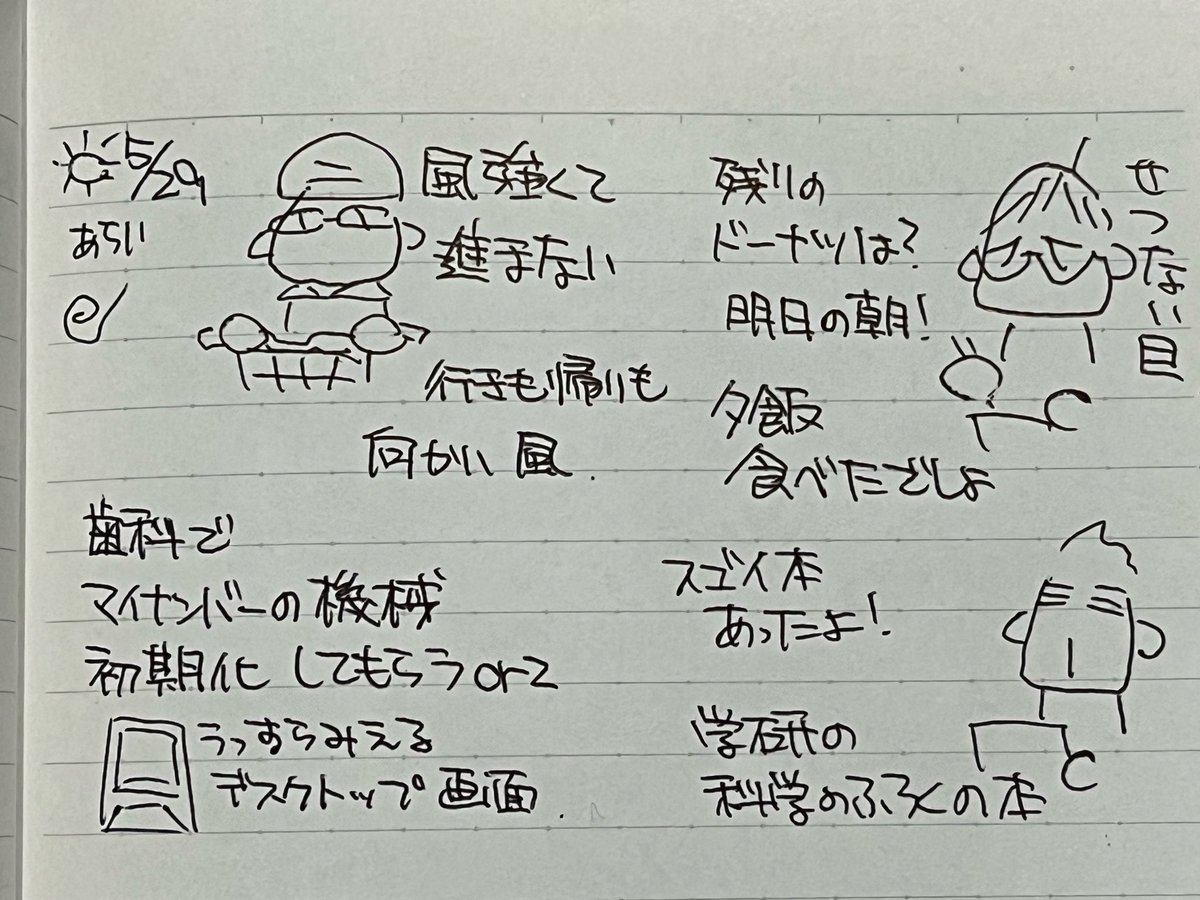 5/29
あらい
風強くて
進まない
行きも帰りも
向かい風.
歯科で
マイナンバーの機械
初期化してもらうorz
うっすらみえる
デスクトップ画面.
残りの
ドーナツは?
明日の朝!
夕飯
食べたでしょ
せつない目
スゴイ本
あったよ!
学研の
科学のふろくの本